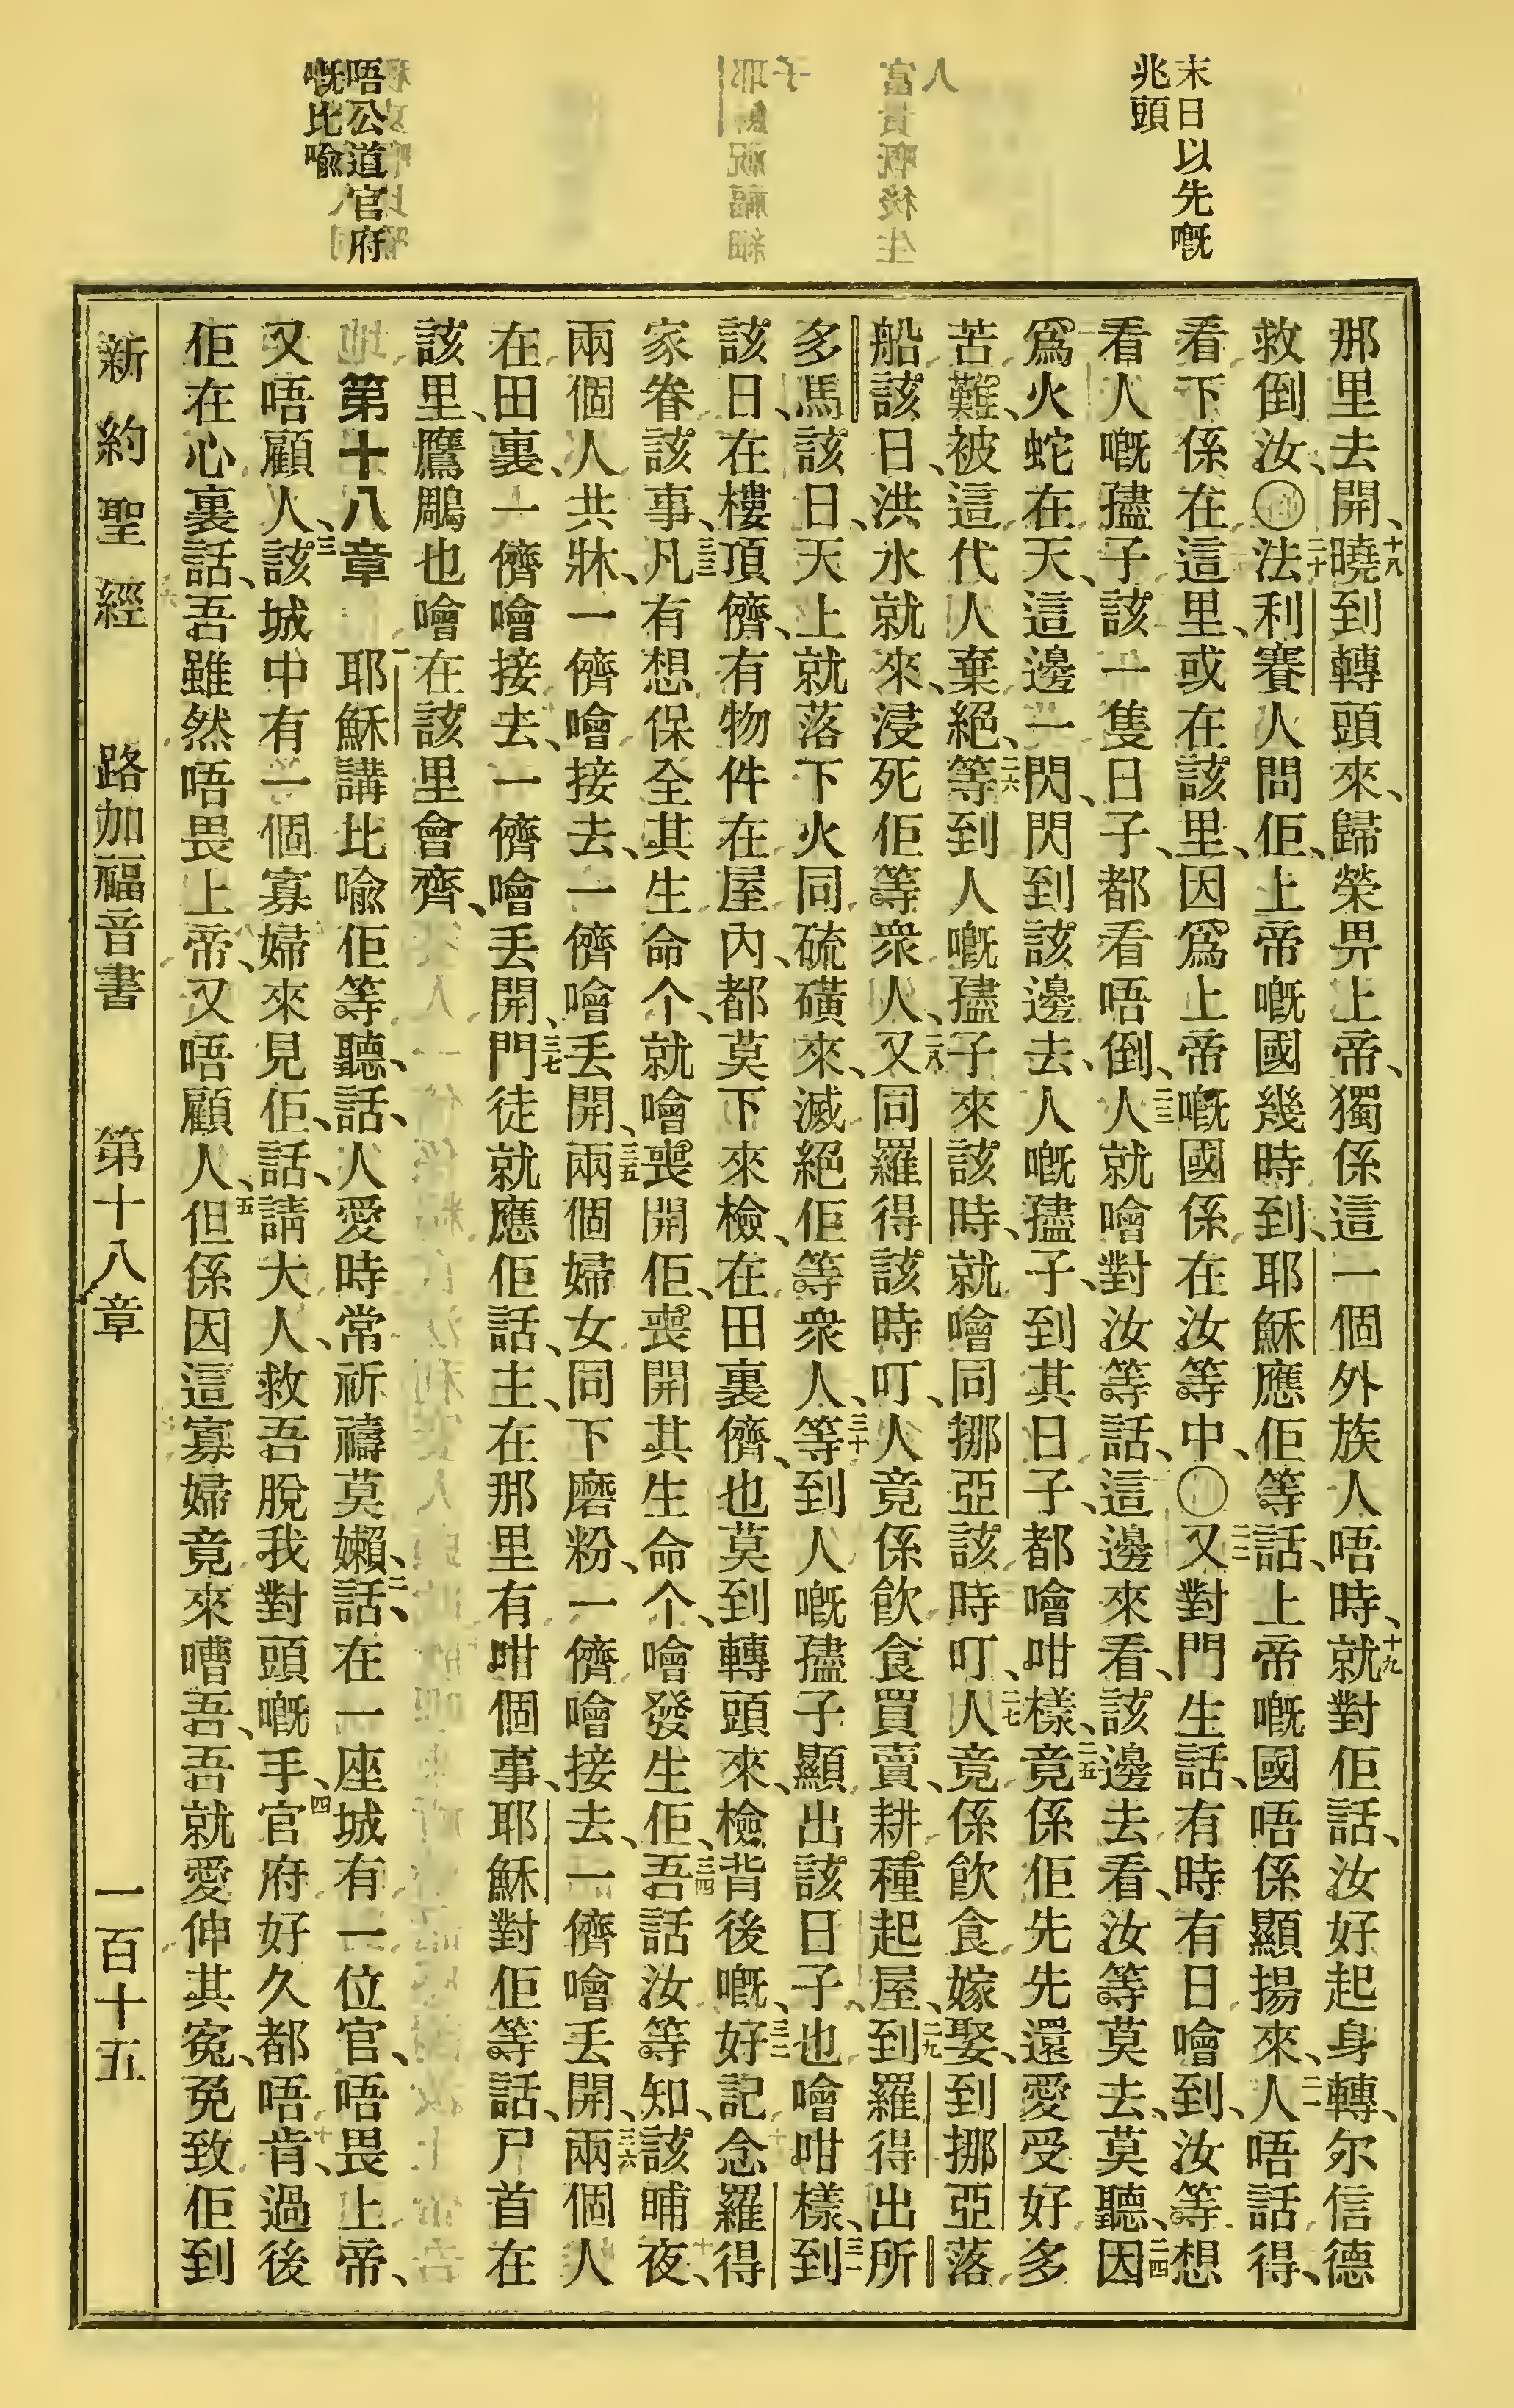 末日以先嘅
兆頭
唔公道官府
嘅比喩
那里去開、十八曉到轉頭來、歸榮畀上帝、獨係這一個外族人唔時、十九就對佢話、汝好起身轉、尔信德
救倒汝、〇二十法利賽人問佢、上帝嘅國幾時到、耶穌應佢等話、上帝嘅國唔係顯揚來、二一人唔話得、
看下係在這里、或在該里、因爲上帝嘅國係在汝等中、〇二二又對門生話、有時有日噲到、汝等想
看人嘅孻子該一隻日子、都看唔倒、二三人就噲對汝等話、這邊來看、該邊去看、汝等莫去、莫聽、二四因
爲火蛇在天、這邊一閃、閃到該邊去、人嘅孻子、到其日子、都噲咁樣、二五竟係佢先先還愛受好多
苦難、被這代人棄絕、二六等到人嘅孻子來該時、就噲同挪亞該時叮、二七人竟係飮食嫁娶、到挪亞落
船該日、洪水就來、浸死佢等衆人、二八又同羅得該時叮、人竟係飮食買賣、耕種起屋、二九到羅得出所
多馬該日、天上就落下火同硫磺來、滅絕佢等衆人、三十等到人嘅孻子顯出該日子、也噲咁樣、三一到
該日、在樓頂儕、有物件在屋內、都莫下來檢、在田裏儕、也莫到轉頭來、檢背後嘅、三二好記念羅得
家眷該事、三三凡有想保全其生命个、就噲喪開佢、喪開其生命个、噲發生佢、三四吾話汝等知、該晡夜、
兩個人共牀、一儕噲接去、一儕噲丢開、三五兩個婦女同下磨粉、一儕噲接去、一儕噲丢開、三六兩個人
在田裏、一儕噲接去、一儕噲丢開、三七門徒就應佢話、主、在那里有咁個事、耶穌對佢等話、尸首在
該里、鷹鵰也噲在該里會齊、
第十八章 一耶穌講比喩佢等聽、話、人愛時常祈禱莫嬾、二話、在一座城有一位官、唔畏上帝、
又唔顧人、三該城中有一個寡婦來見佢、話、請大人、救吾脫我對頭嘅手、四官府好久都唔肯、過後
佢在心裏話、吾雖然唔畏上帝、又唔顧人、五但係因這寡婦竟來嘈吾、吾就愛伸其寃、免致佢到
新約聖經 路加福音書 第十八章 一百十五